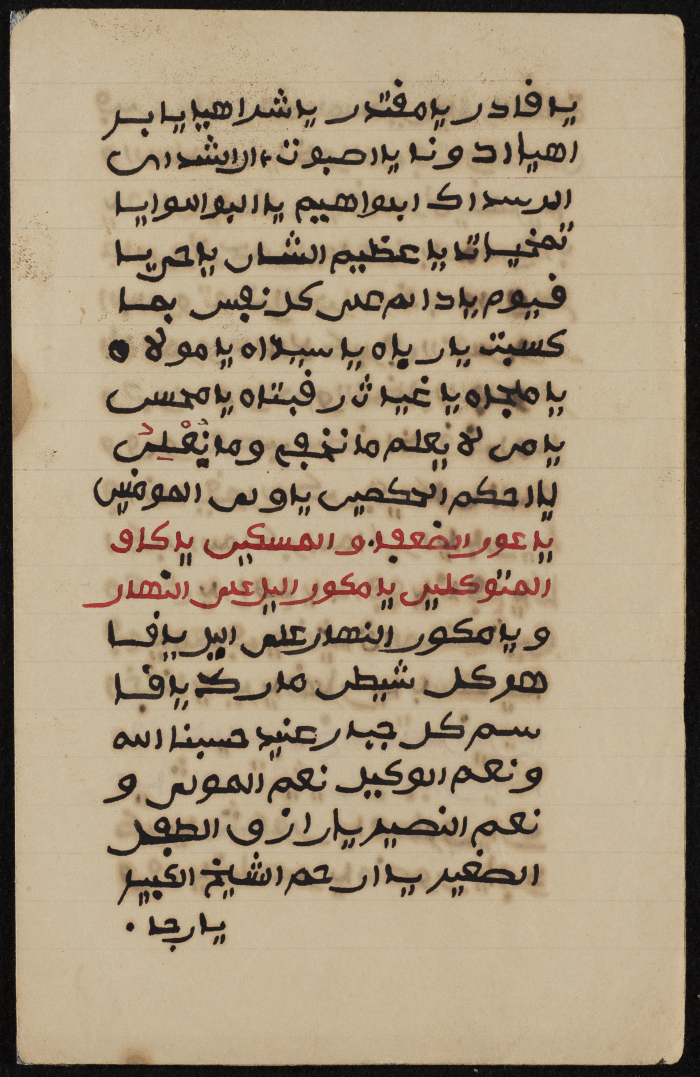 يا قادر يا مقتدر يا شراهيا يا بر
اهيا اد ونا يا اصبوت ال اشداى
يا البو البوايا
تمخيا تا يا عظيم الشان يا حي يا
قيوم يا دائم على كل نفس بما
كسبت يا رباه يا سيداه يا مولاه
يا ملجاه يا غياث رقبتاه يا محسن
يا من لا يعلم ما نخفى وما نعلن
يا احكم الحكمين يا ولى المومنين
يا عون الضعفا و المسكين يا كاف
المتوكلين يا مكور اليل على النهار
و يا مكور النهار على اليل يا قا
هر كل شيطن مارد يا قا
سم كل جبار عنيد حسبنا الله
و نعم الوكيل نعم المولى و
نعم النصير يا رازق الطفل
الصغير يا ارحم الشيخ الكبير
يا رجا